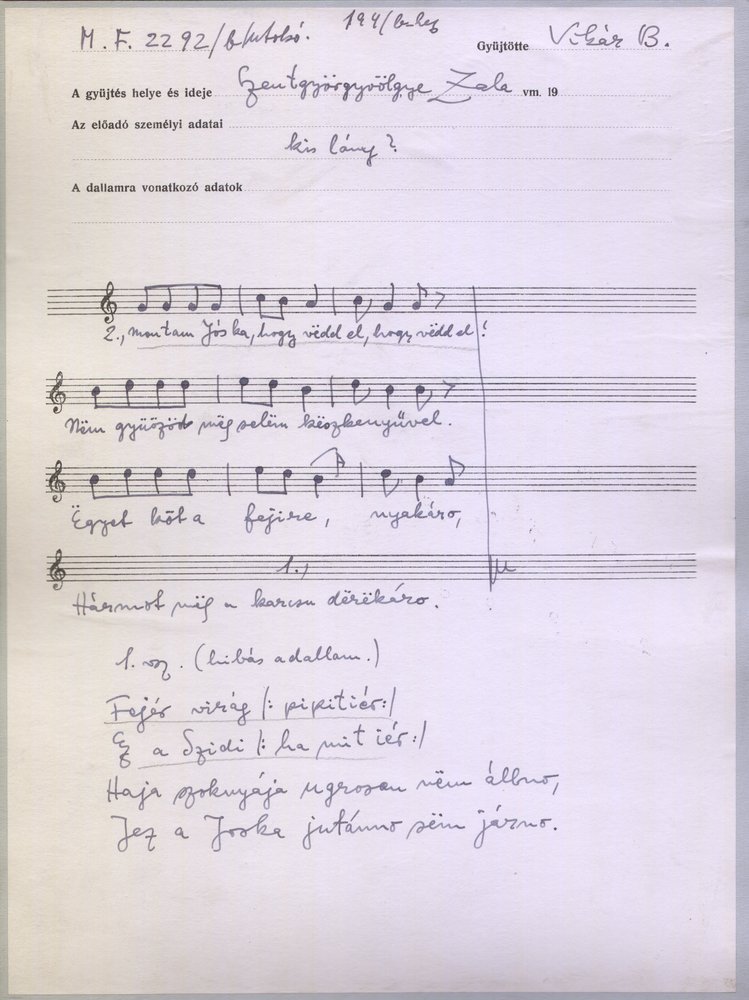 M. F. 2292/b/utolsó.
Gyüjtötte Vikár B.
A gyüjtés helye és ideje Szentgyörgyvölgye Zala vm. 19
Az előadó személyi adatai
kis lány?
A dallamra vonatkozó adatok
2., montam Jóska, hogy vëdd el, hogy vëdd el!
Nëm győzöd mëg selëm këözkenyűvel.
Ëgyet köt a fejire, nyakáro,
1.,
Hármot mëg a karcsu dërëkáro.
1. vsz. (hibás a dallam.)
Fejér virág /: pipitiér:/
Ez a Szidi /: ha mit iér:/
Haja szoknyája ugrosan nëm állno,
Jez a Joska jutánno sëm járno.